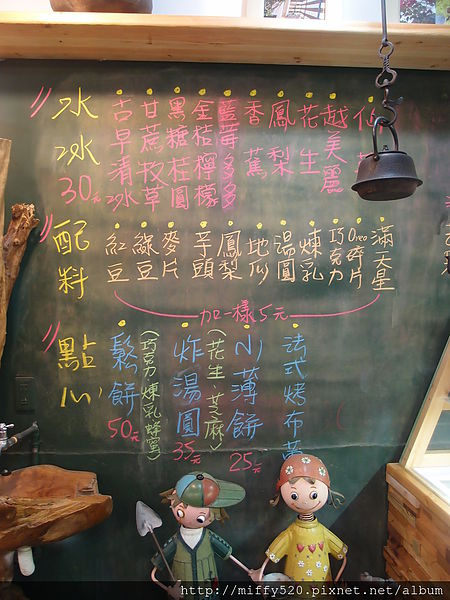 水冰
30元
古早清冰
甘蔗牧草
黑糖桂圓
金桔檸檬
藍莓多多
香蕉
鳳梨
花生
越美麗
仙
配料
紅豆
綠豆
麥片
芋頭
鳳梨
地瓜
湯圓
煉乳
巧克力
Oreo碎片
滿天星
加一樣5元
點心
鬆餅
50元
(巧克力、煉乳、蜂蜜)
炸湯圓
35元
(花生、芝麻)
小薄餅
25元
法式烤布蕾
http://miffy520.pixnet.net/album